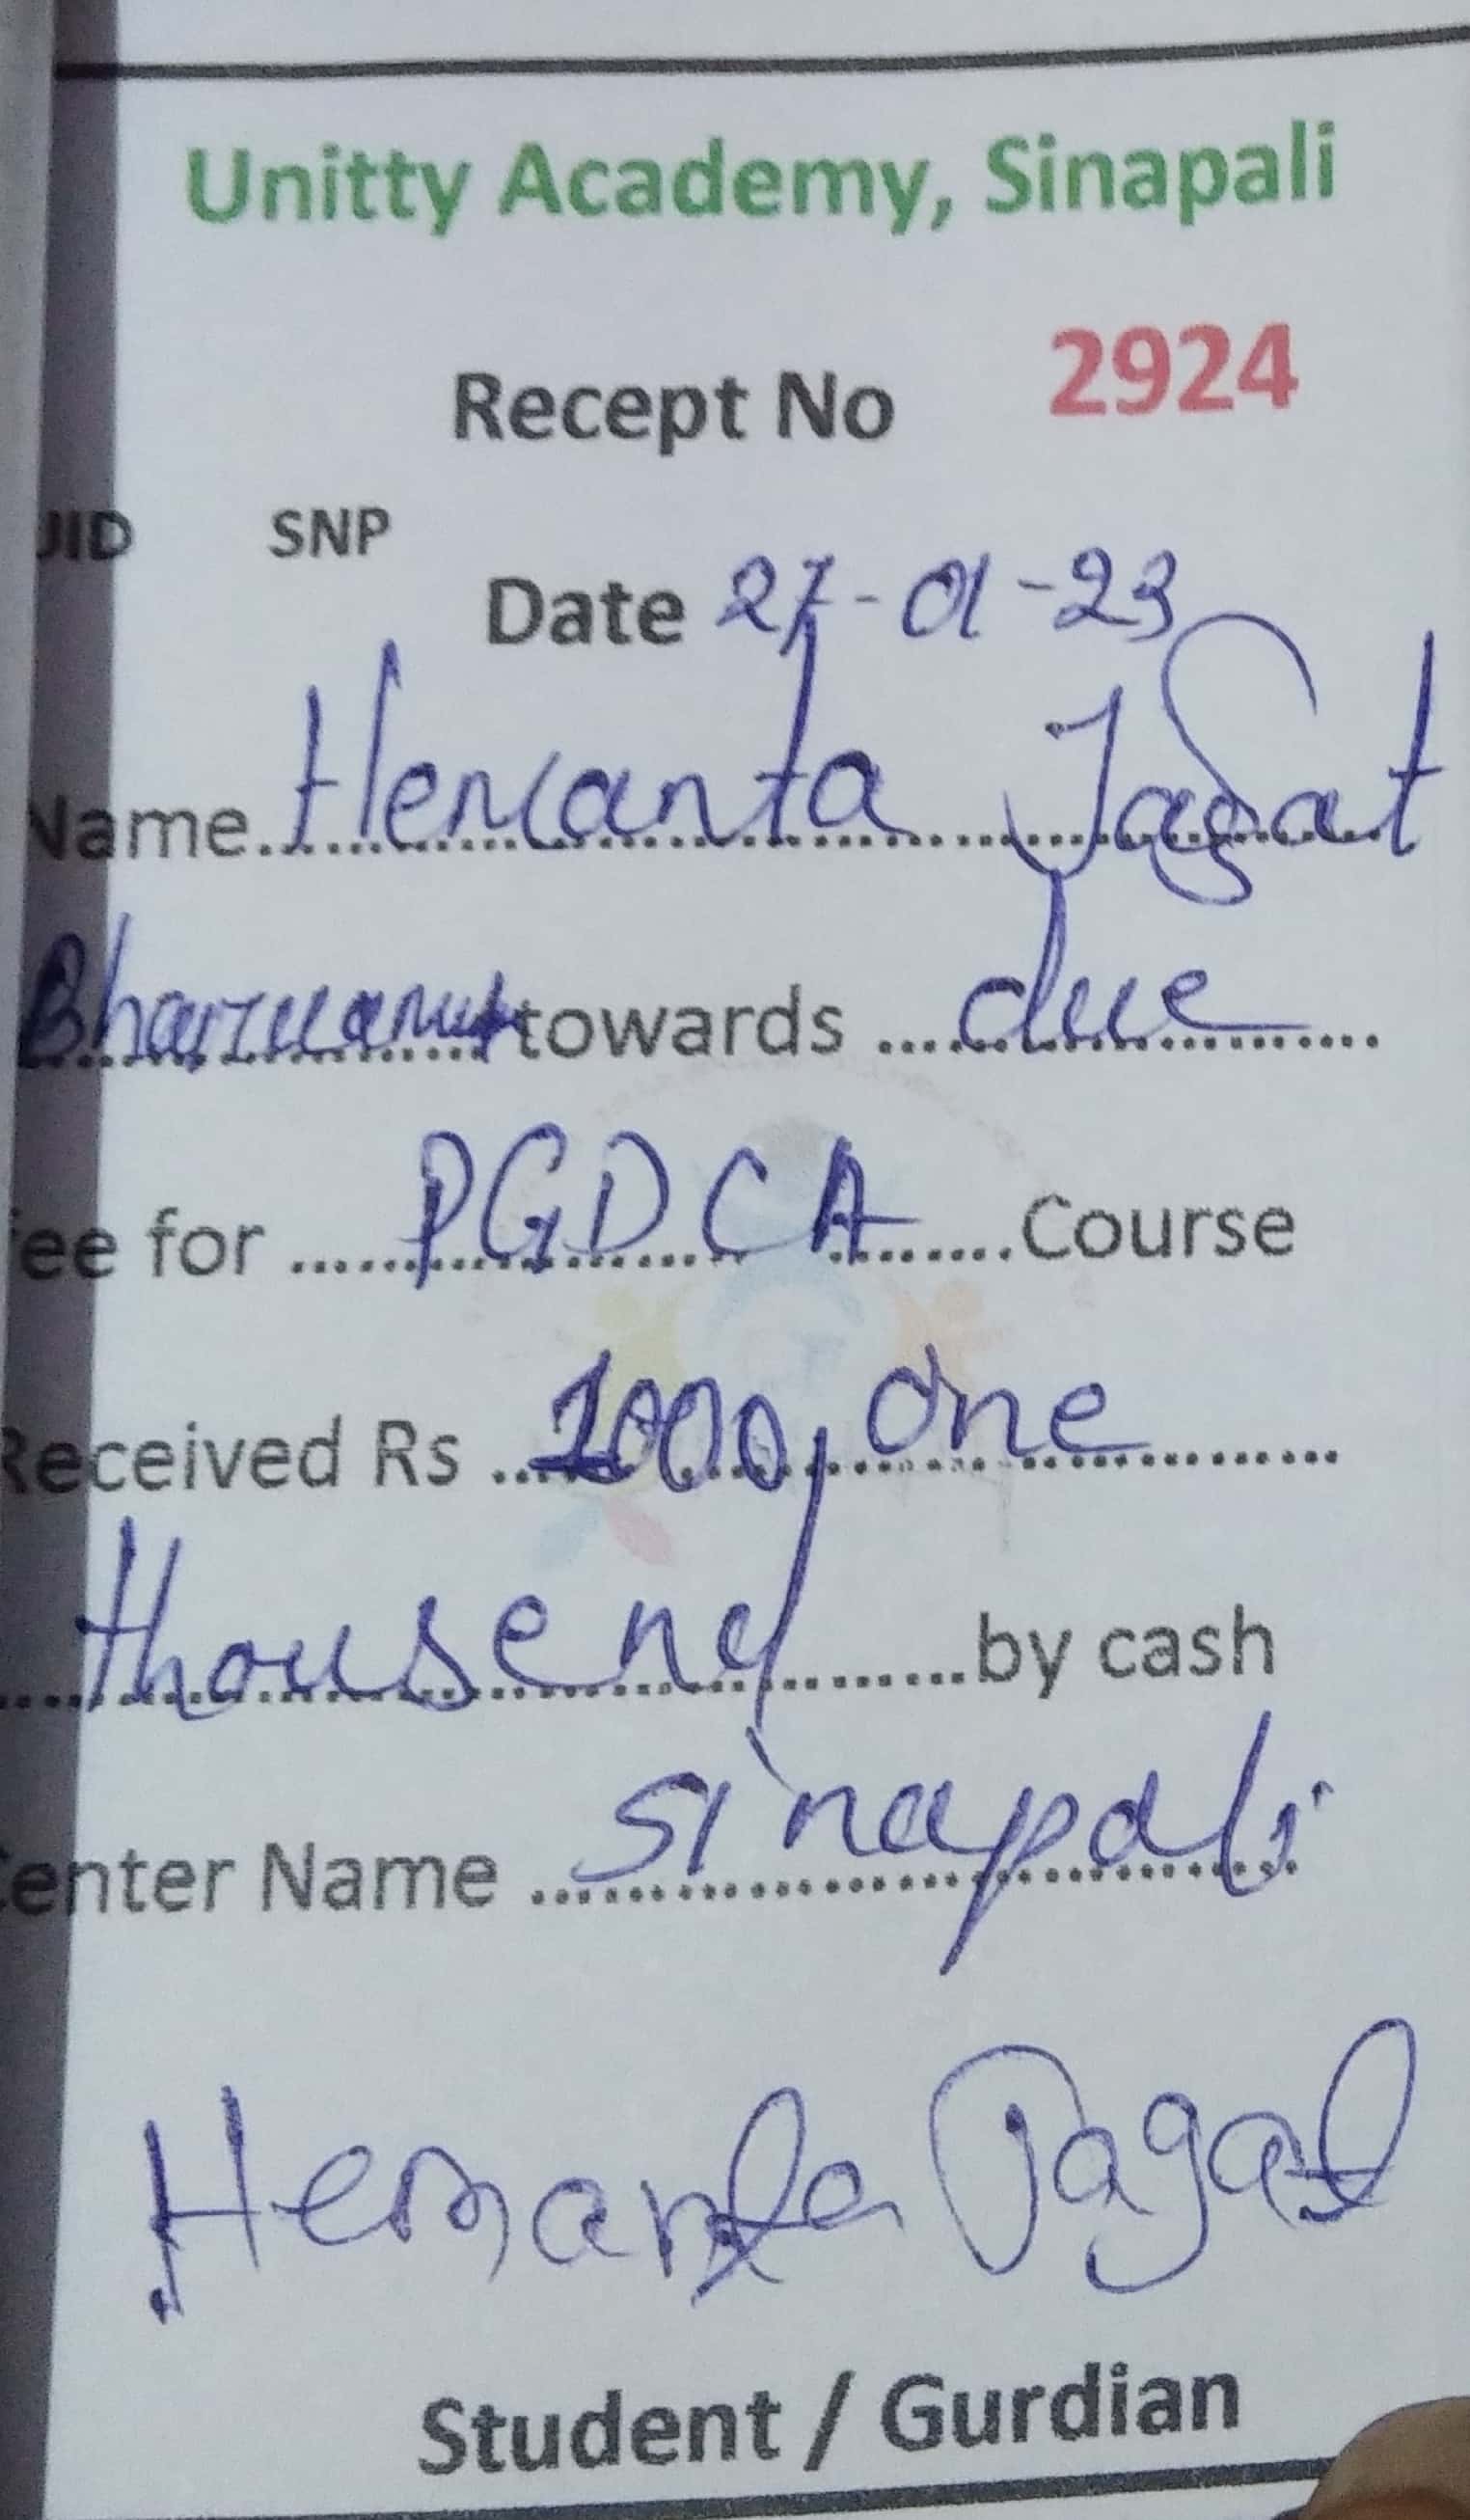 Unitty Academy, Sinapali
Recept No 2924
UID SNP
Date 27-01-23
Name Hemanta Jagat
towards due
fee for PGDCA Course
Received Rs 1000, one
thousend by cash
Center Name sinapali
Hemanta Jagat
Student / Gurdian